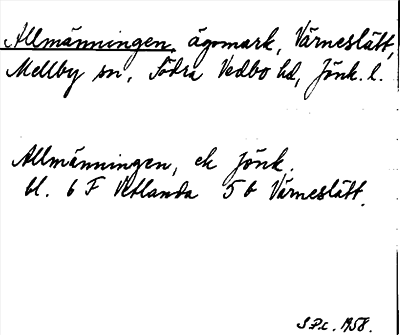 Allmänningen, ägomark, Värneslätt,
Mellby sn, Södra Vedbo hd, Jönk. l.
Allmänningen, ek Jönk.
bl. 6 F Vetlanda 5 b Värneslätt.
1958.